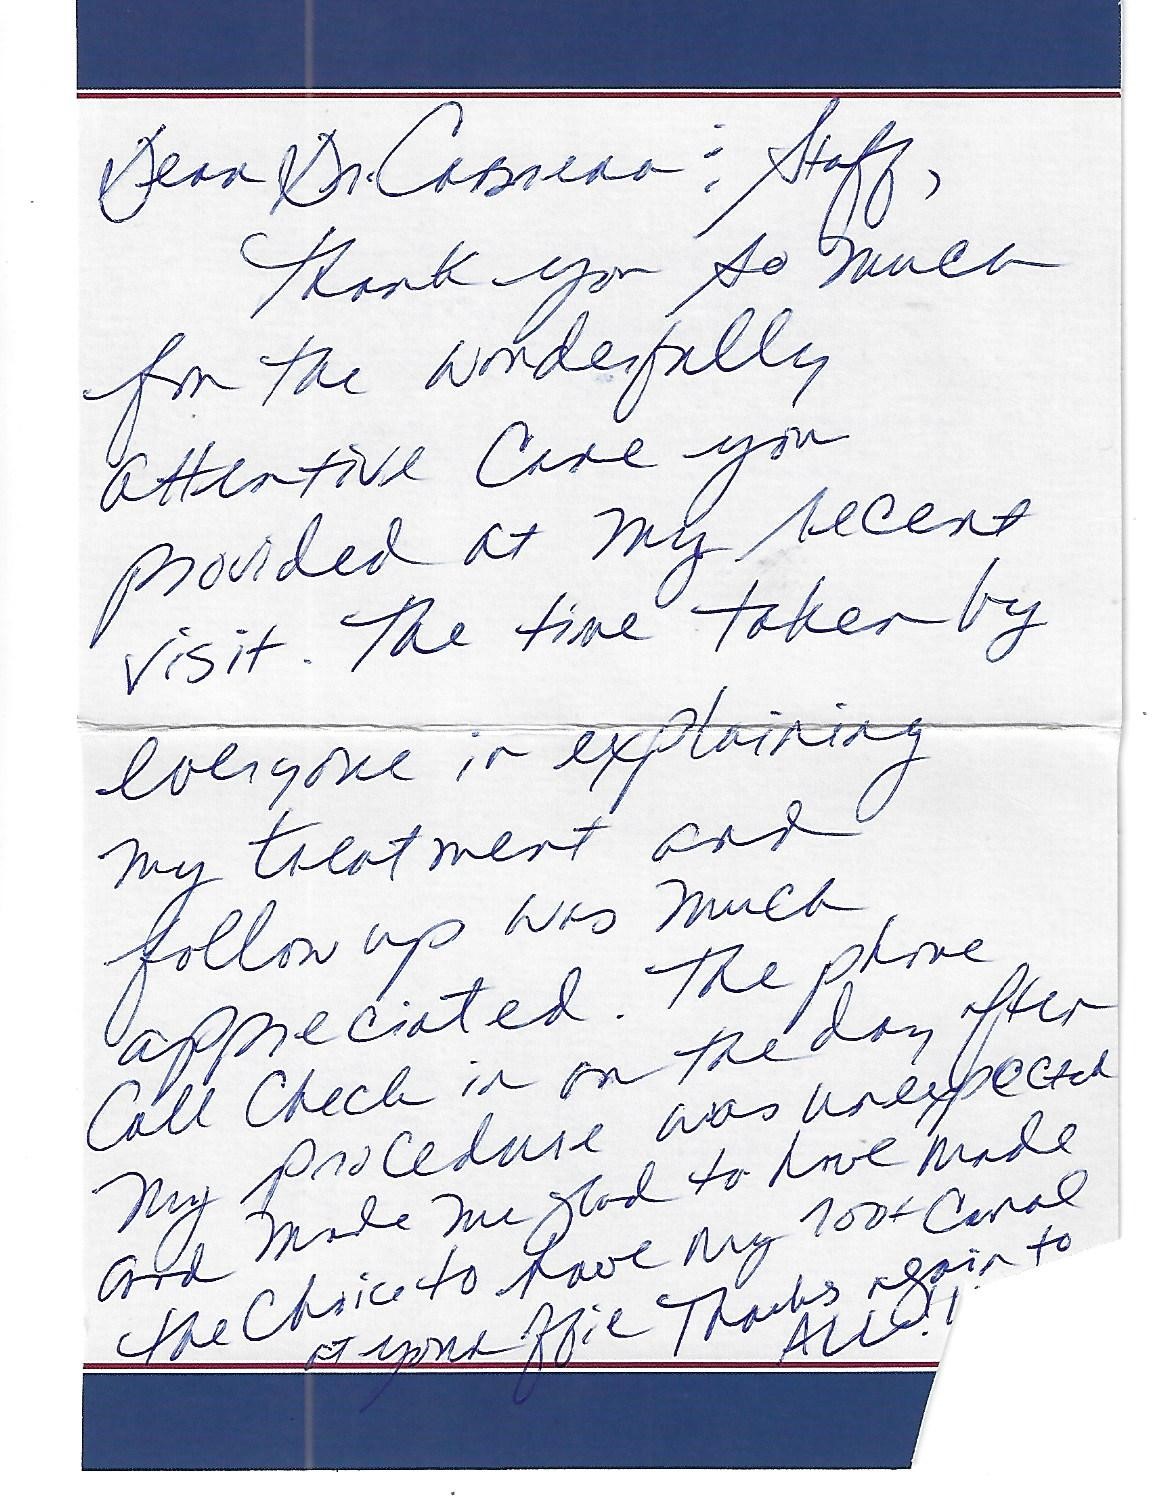 Dear Dr. Cabrera & Staff,
Thank you so much
for the wonderfully
attentive Care you
provided at my recent
visit. The time taken by
everyone in explaining
my treatment and
follow up was much
appreciated. The phone
Call Check in on the day after
my procedure was unexpected
and made me glad to have made
the Choice to have my root Canal
at your offie Thanks again to
ALL!!